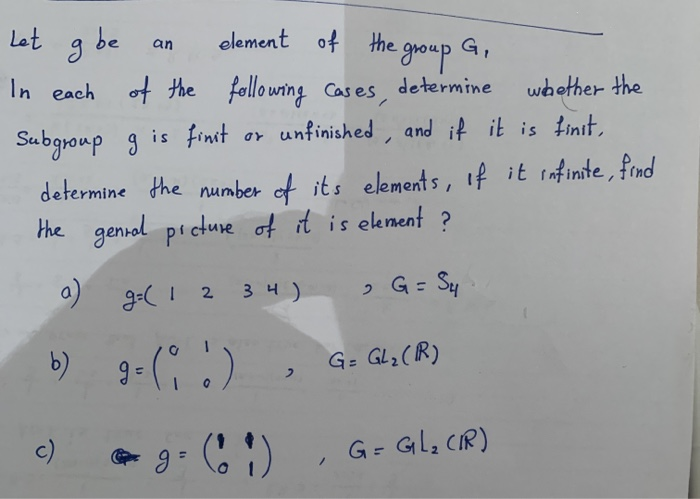 Let g be an element of the group G,
In each of the following Cases, determine whether the
Subgroup g is finit or unfinished, and if it is finit,
determine the number of its elements, If it infinite, find
the genral picture of it is element ?
a) g=( 1 2 3 4 ) , G = S4
b) g = (0 1
1 0) , G = GL2(R)
c) g = (1 1
0 1) , G = GL2(R)